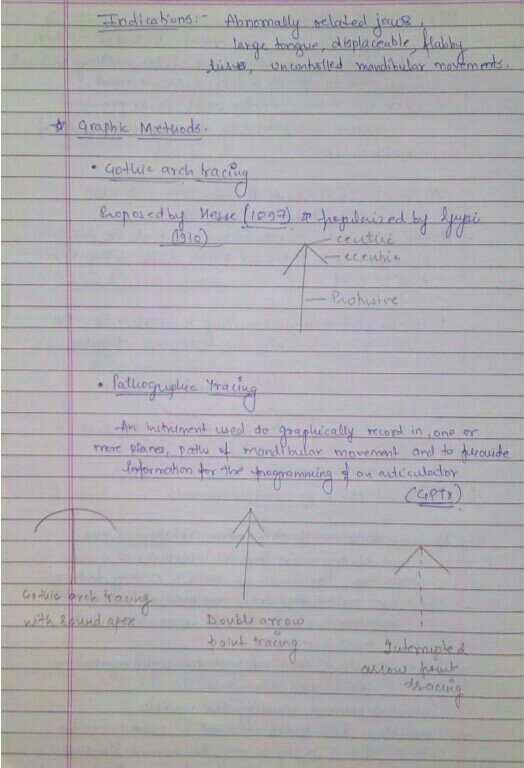 Indications:- Abnormally related jaws,
large tongue, displaceable, flabby
tissue, uncontrolled mandibular movements.
☆ Graphic Methods.
• Gothic arch tracing
Proposed by Hesse (1897) & popularized by Gysi
(1910)
centric
eccentric
Protrusive
• Pathographic Tracing
An instrument used to graphically record in, one or
more planes, paths of mandibular movement and to provide
Information for the programming of an articulator
(GPT8)
Gothic arch tracing
with round apex
Double arrow
point tracing
Interrupted
arrow point
tracing